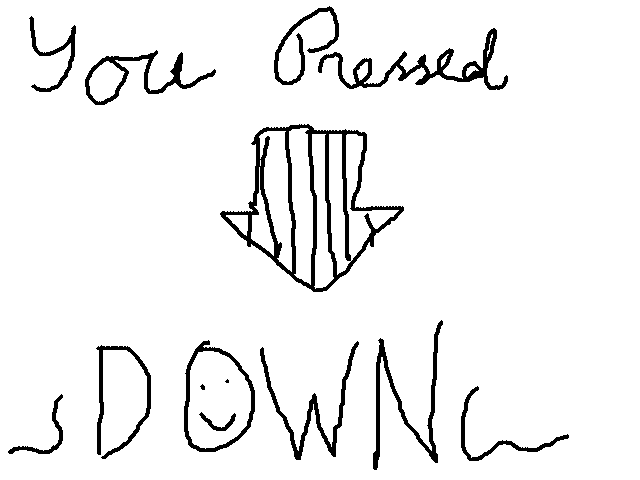 You Pressed
DOWN